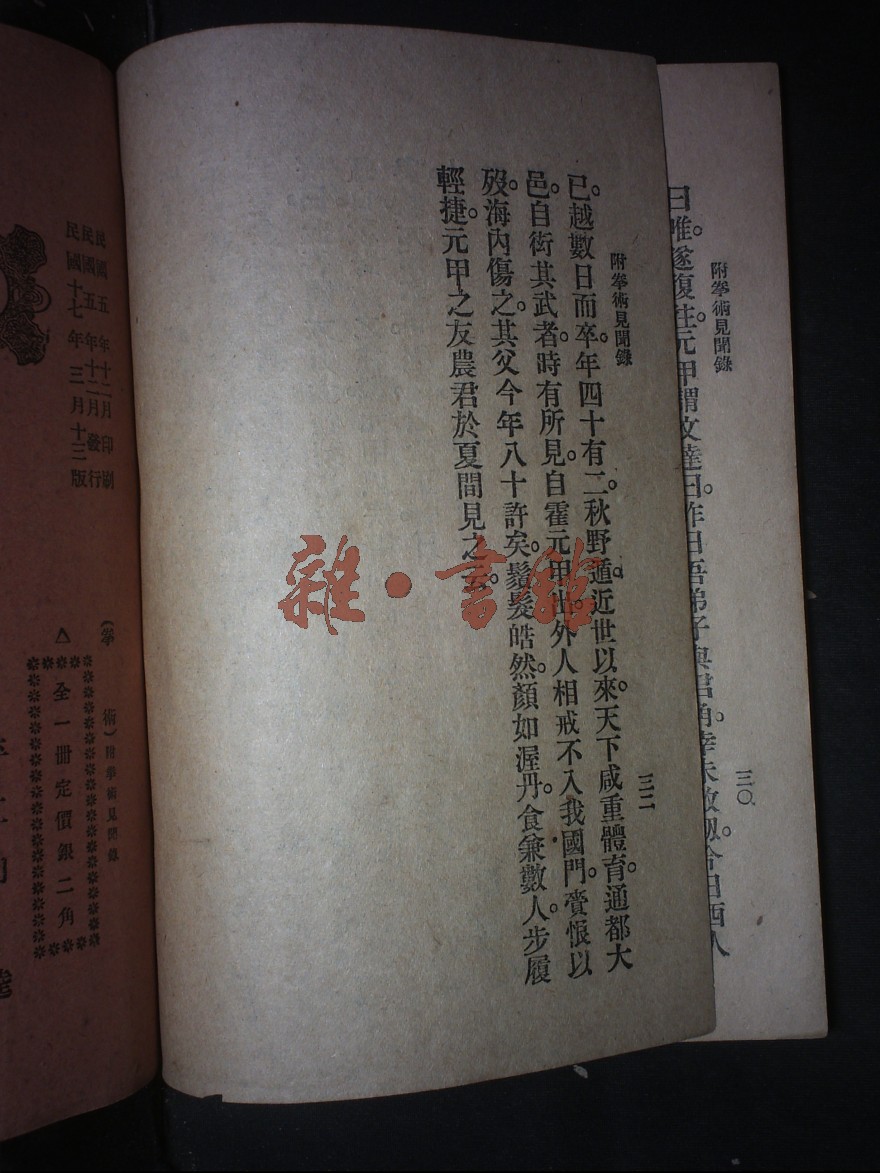 曰唯。遂復往。元甲謂文達曰。昨日吾弟子與君角。幸未敗衂。今日西人
附拳術見聞錄
三〇
附拳術見聞錄
三二
已。越數日而卒。年四十有二。秋野遁。近世以來。天下咸重體育。通都大
邑。自衒其武者。時有所見。自霍元甲出。外人相戒不入我國門。賫恨以
歿。海內傷之。其父今年八十許矣。鬚髮皓然。顏如渥丹。食兼數人。步履
輕捷。元甲之友農君於夏間見之云。
雜·書館
民國五年十二月印刷
民國五年十二月發行
民國十七年三月十三版
(拳術)附拳術見聞錄
△全一冊定價銀二角